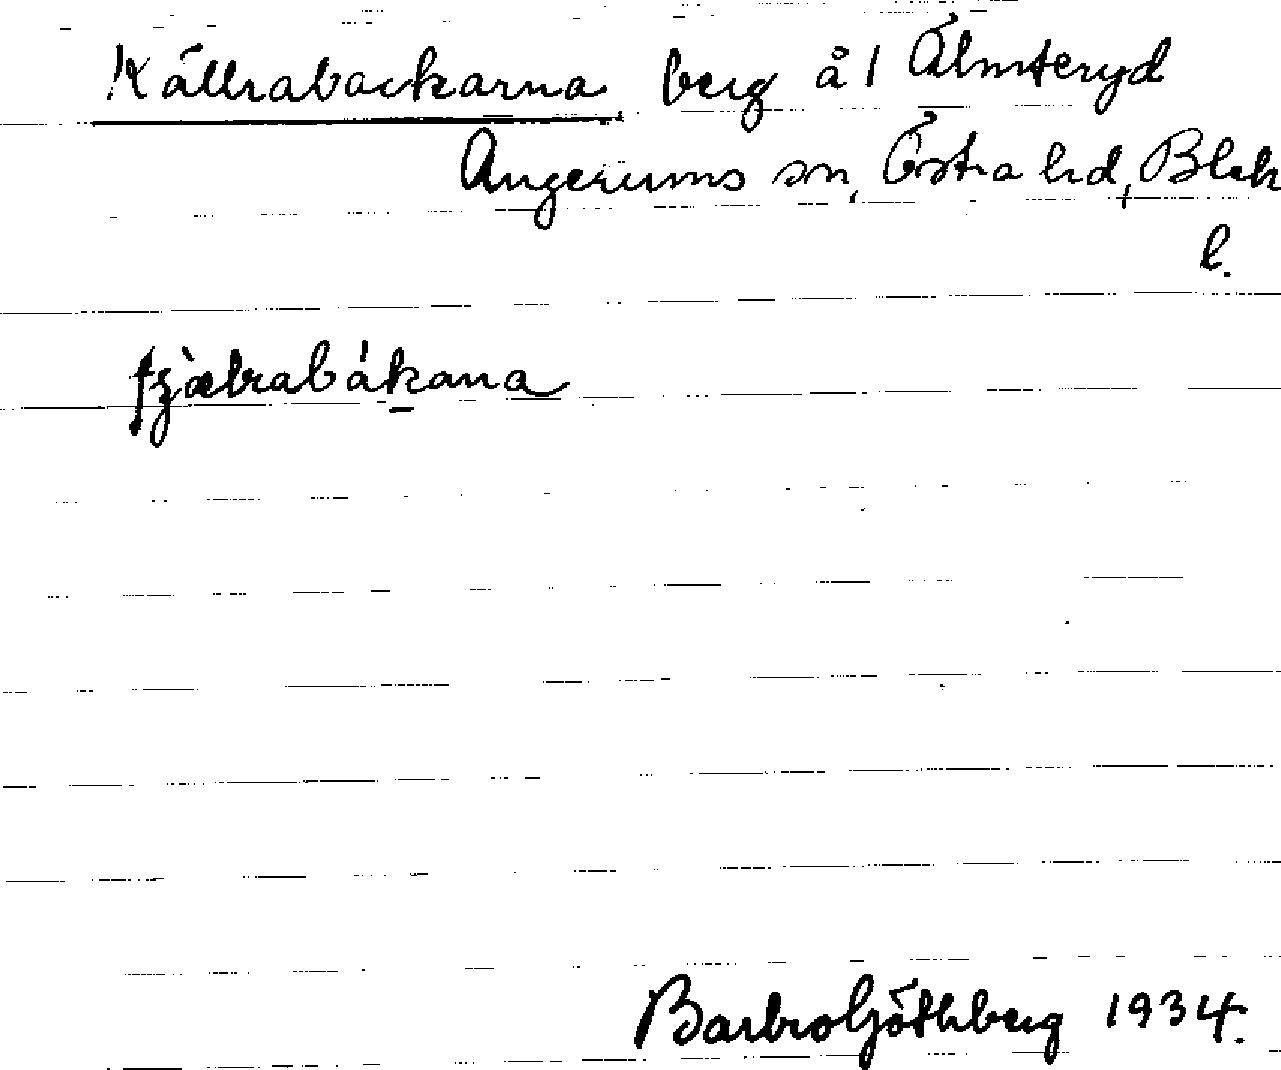 Källrabackarna berg å 1 Älmteryd
Augerums sn, Östra hd, Blek
l.
Barbro Göthberg 1934.